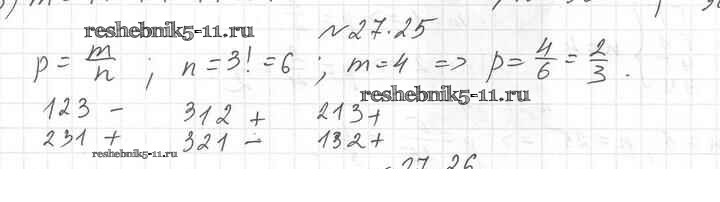 №27.25
reshebnik5-11.ru
p = m/n ; n = 3! = 6 ; m = 4 => p = 4/6 = 2/3 .
reshebnik5-11.ru
123 - 312 + 213 +
231 + 321 - 132 +
reshebnik5-11.ru
27.26